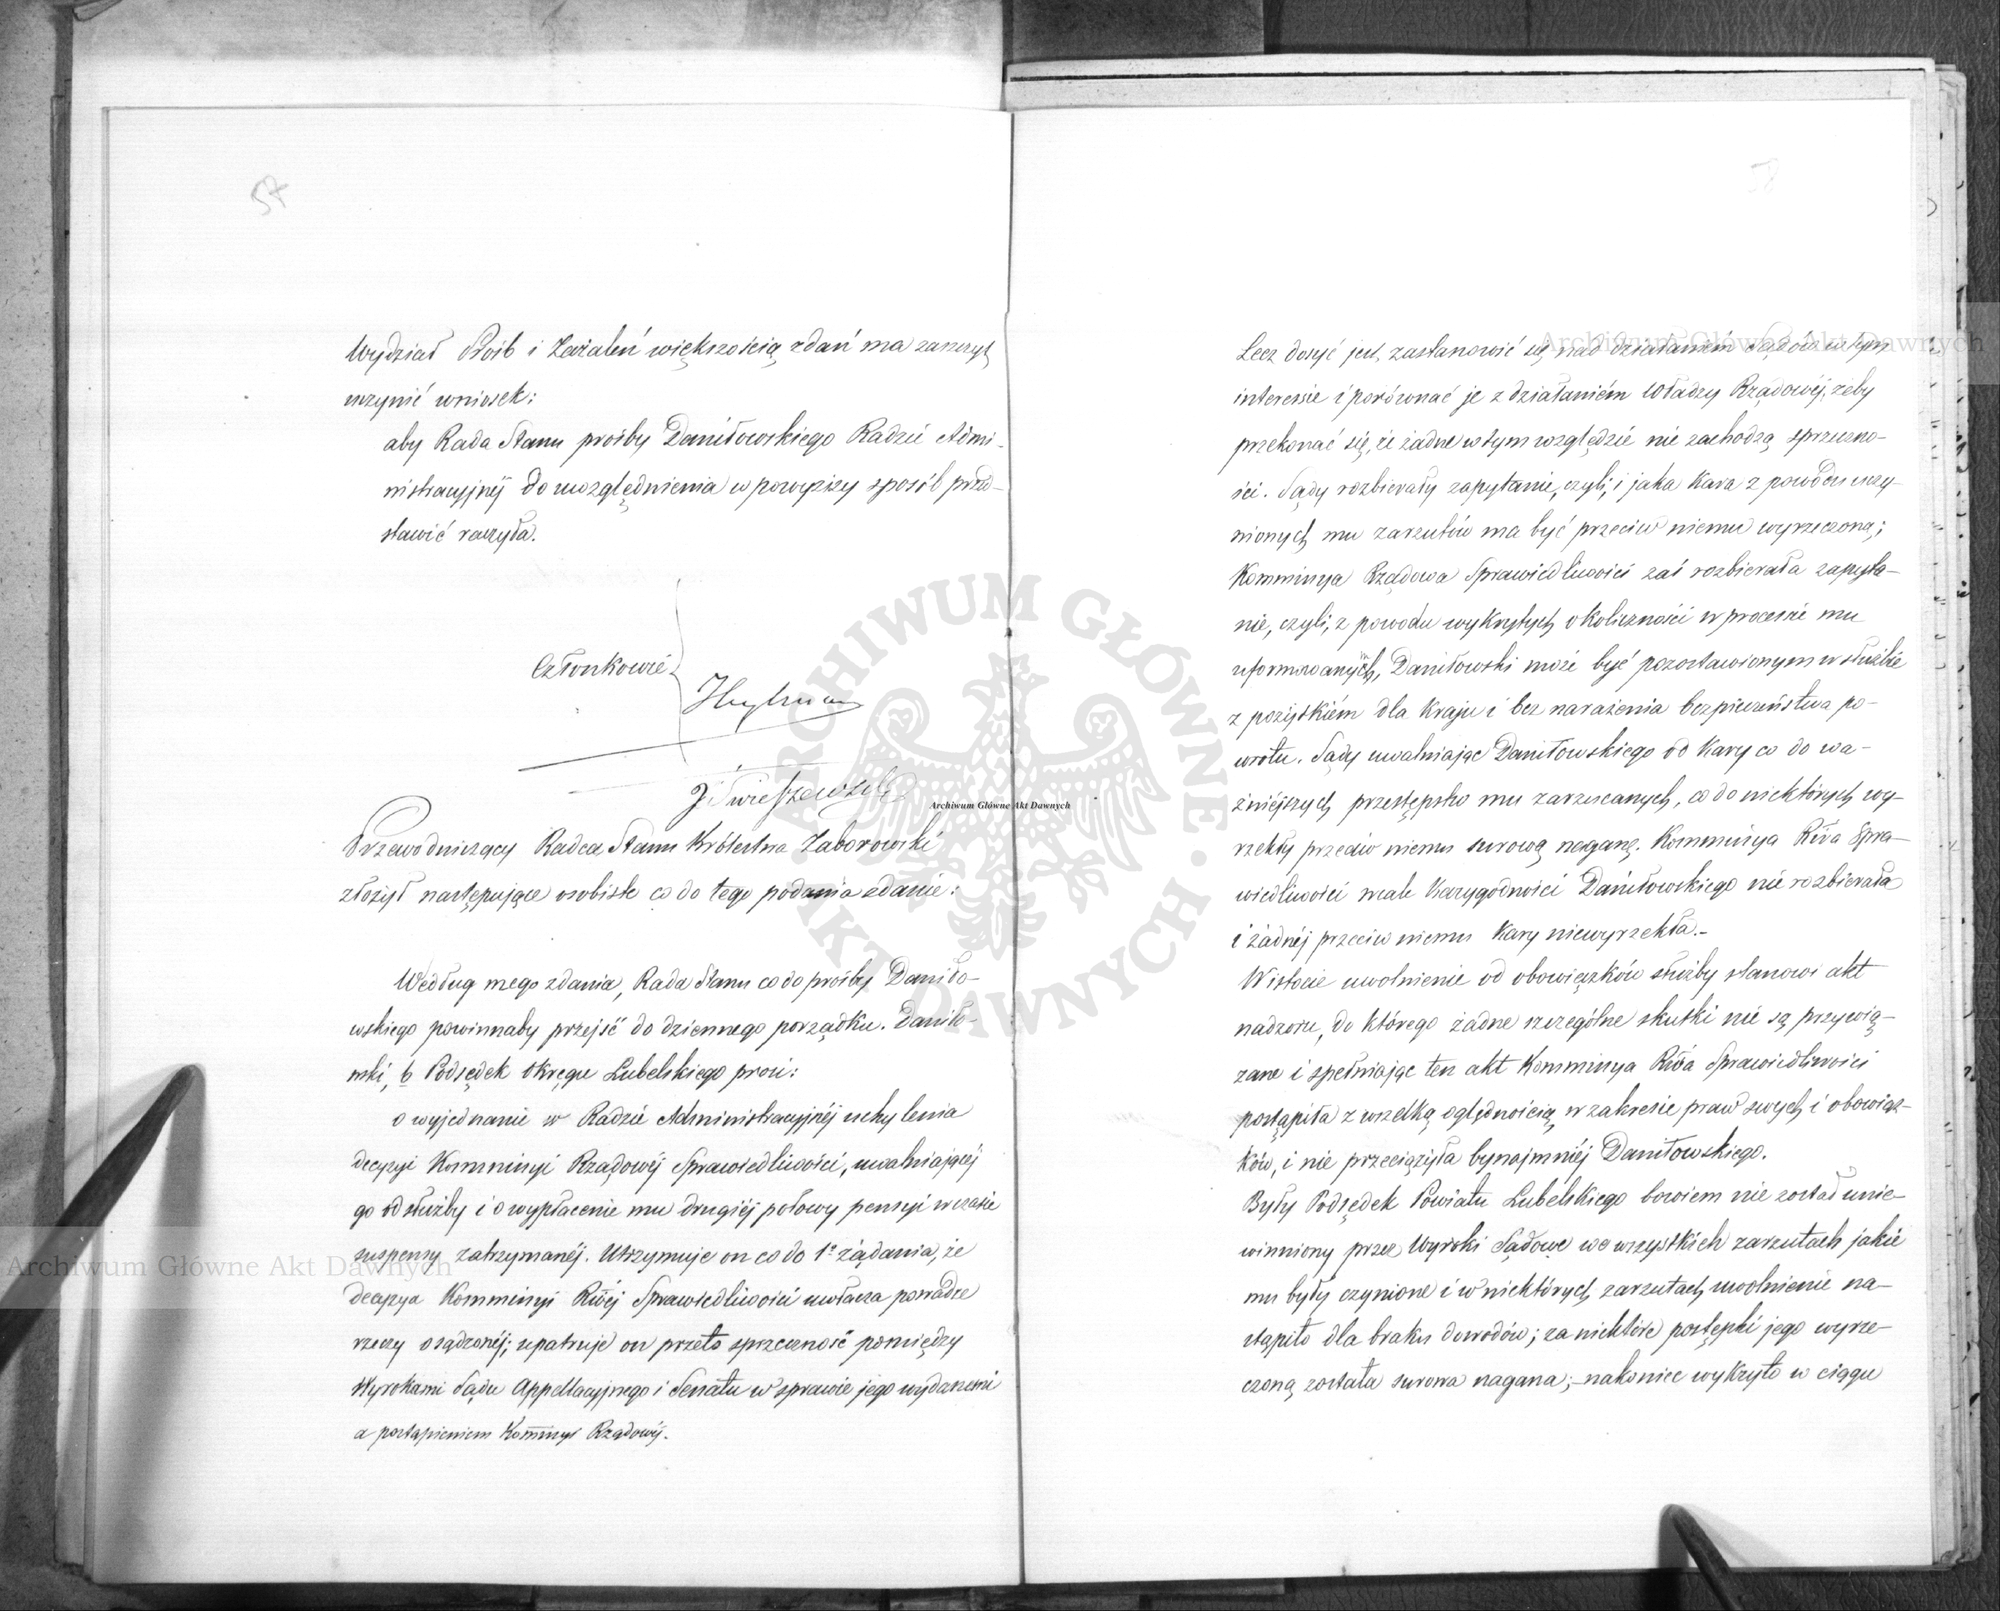 57
Wydział Próśb i Zażaleń większością zdań ma zaszczyt
uczynić wniosek:
aby Rada Stanu prośby Daniłowskiego Radzie Admi-
nistracyjnéj do uwzględnienia w powyższy sposób przed-
stawić raczyła.
Członkowie
Przewodniczący Radca Stanu Królestwa Zaborowski
złożył następujące osobiste co do tego podania zdanie:
Według mego zdania, Rada Stanu co do prośby Daniło-
wskiego powinnaby przejść do dziennego porządku. Daniło-
wski, b Podsędek Okręgu Lubelskiego prosi:
o wyjednanie w Radzie Administracyjnéj uchylenia
decyzyi Kommissyi Rządowéj Sprawiedliwości, uwalniającéj
go od służby i o wypłacenie mu drugiéj połowy pensyi w czasie
suspensy zatrzymanéj. Utrzymuje on co do 1o żądania, że
decyzya Kommissyi Rwéj Sprawiedliwości uwłacza powadze
rzeczy osądzonéj; upatruje on przeto sprzeczność pomiędzy
Wyrokami Sądu Appellacyjnego i Senatu w sprawie jego wydanemi
a postąpieniem Kommissyi Rządowéj.
58
Lecz dosyć jest, zastanowić się nad działaniem Sądów w tym
interessie i porównać je z działaniém Władzy Rządowéj, żeby
przekonać się, że żadne w tym względzie nie zachodzą sprzeczno-
ści. Sądy rozbierały zapytanie, czyli, i jaka kara z powodu uczy-
nionych mu zarzutów ma być przeciw niemu wyrzeczoną;
Kommissya Rządowa Sprawiedliwości zaś rozbierała zapyta-
nie, czyli, z powodu wykrytych okoliczności w processie mu
uformowanych, Daniłowski może być pozostawionym w służbie
z pożytkiém dla Kraju i bez narażenia bezpieczeństwa po-
wrotu. Sądy uwalniając Daniłowskiego od Kary co do wa-
żniéjszych przestępstw mu zarzucanych, co do niektórych wy-
rzekły przeciw niemu surową naganę. Kommissya Rwa Spra-
wiedliwości wcale Karygodności Daniłowskiego nie rozbierała
i żadnéj przeciw niemu Kary niewyrzekła.-
W istocie uwolnienie od obowiązków służby stanowi akt
nadzoru, do którego żadne szczególne skutki nie są przywią-
zane i spełniając ten akt Kommissya Rwa Sprawiedliwości
postąpiła z wszelką oględnością, w zakresie praw swych i obowiąz-
ków, i nie przeciążyła bynajmniéj Daniłowskiego.
Były Podsędek Powiatu Lubelskiego bowiem nie został unie-
winniony przez Wyroki Sądowe we wszystkich zarzutach jakie
mu były czynione i w niektórych zarzutach uwolnienie na-
stąpiło dla braku dowodów; za niektóre postępki jego wyrze-
czoną została surowa nagana; nakoniec wykryto w ciągu
Archiwum Główne Akt Dawnych
Archiwum Główne Akt Dawnych
Archiwum Główne Akt Dawnych
ARCHIWUM GŁÓWNE · AKT DAWNYCH ·